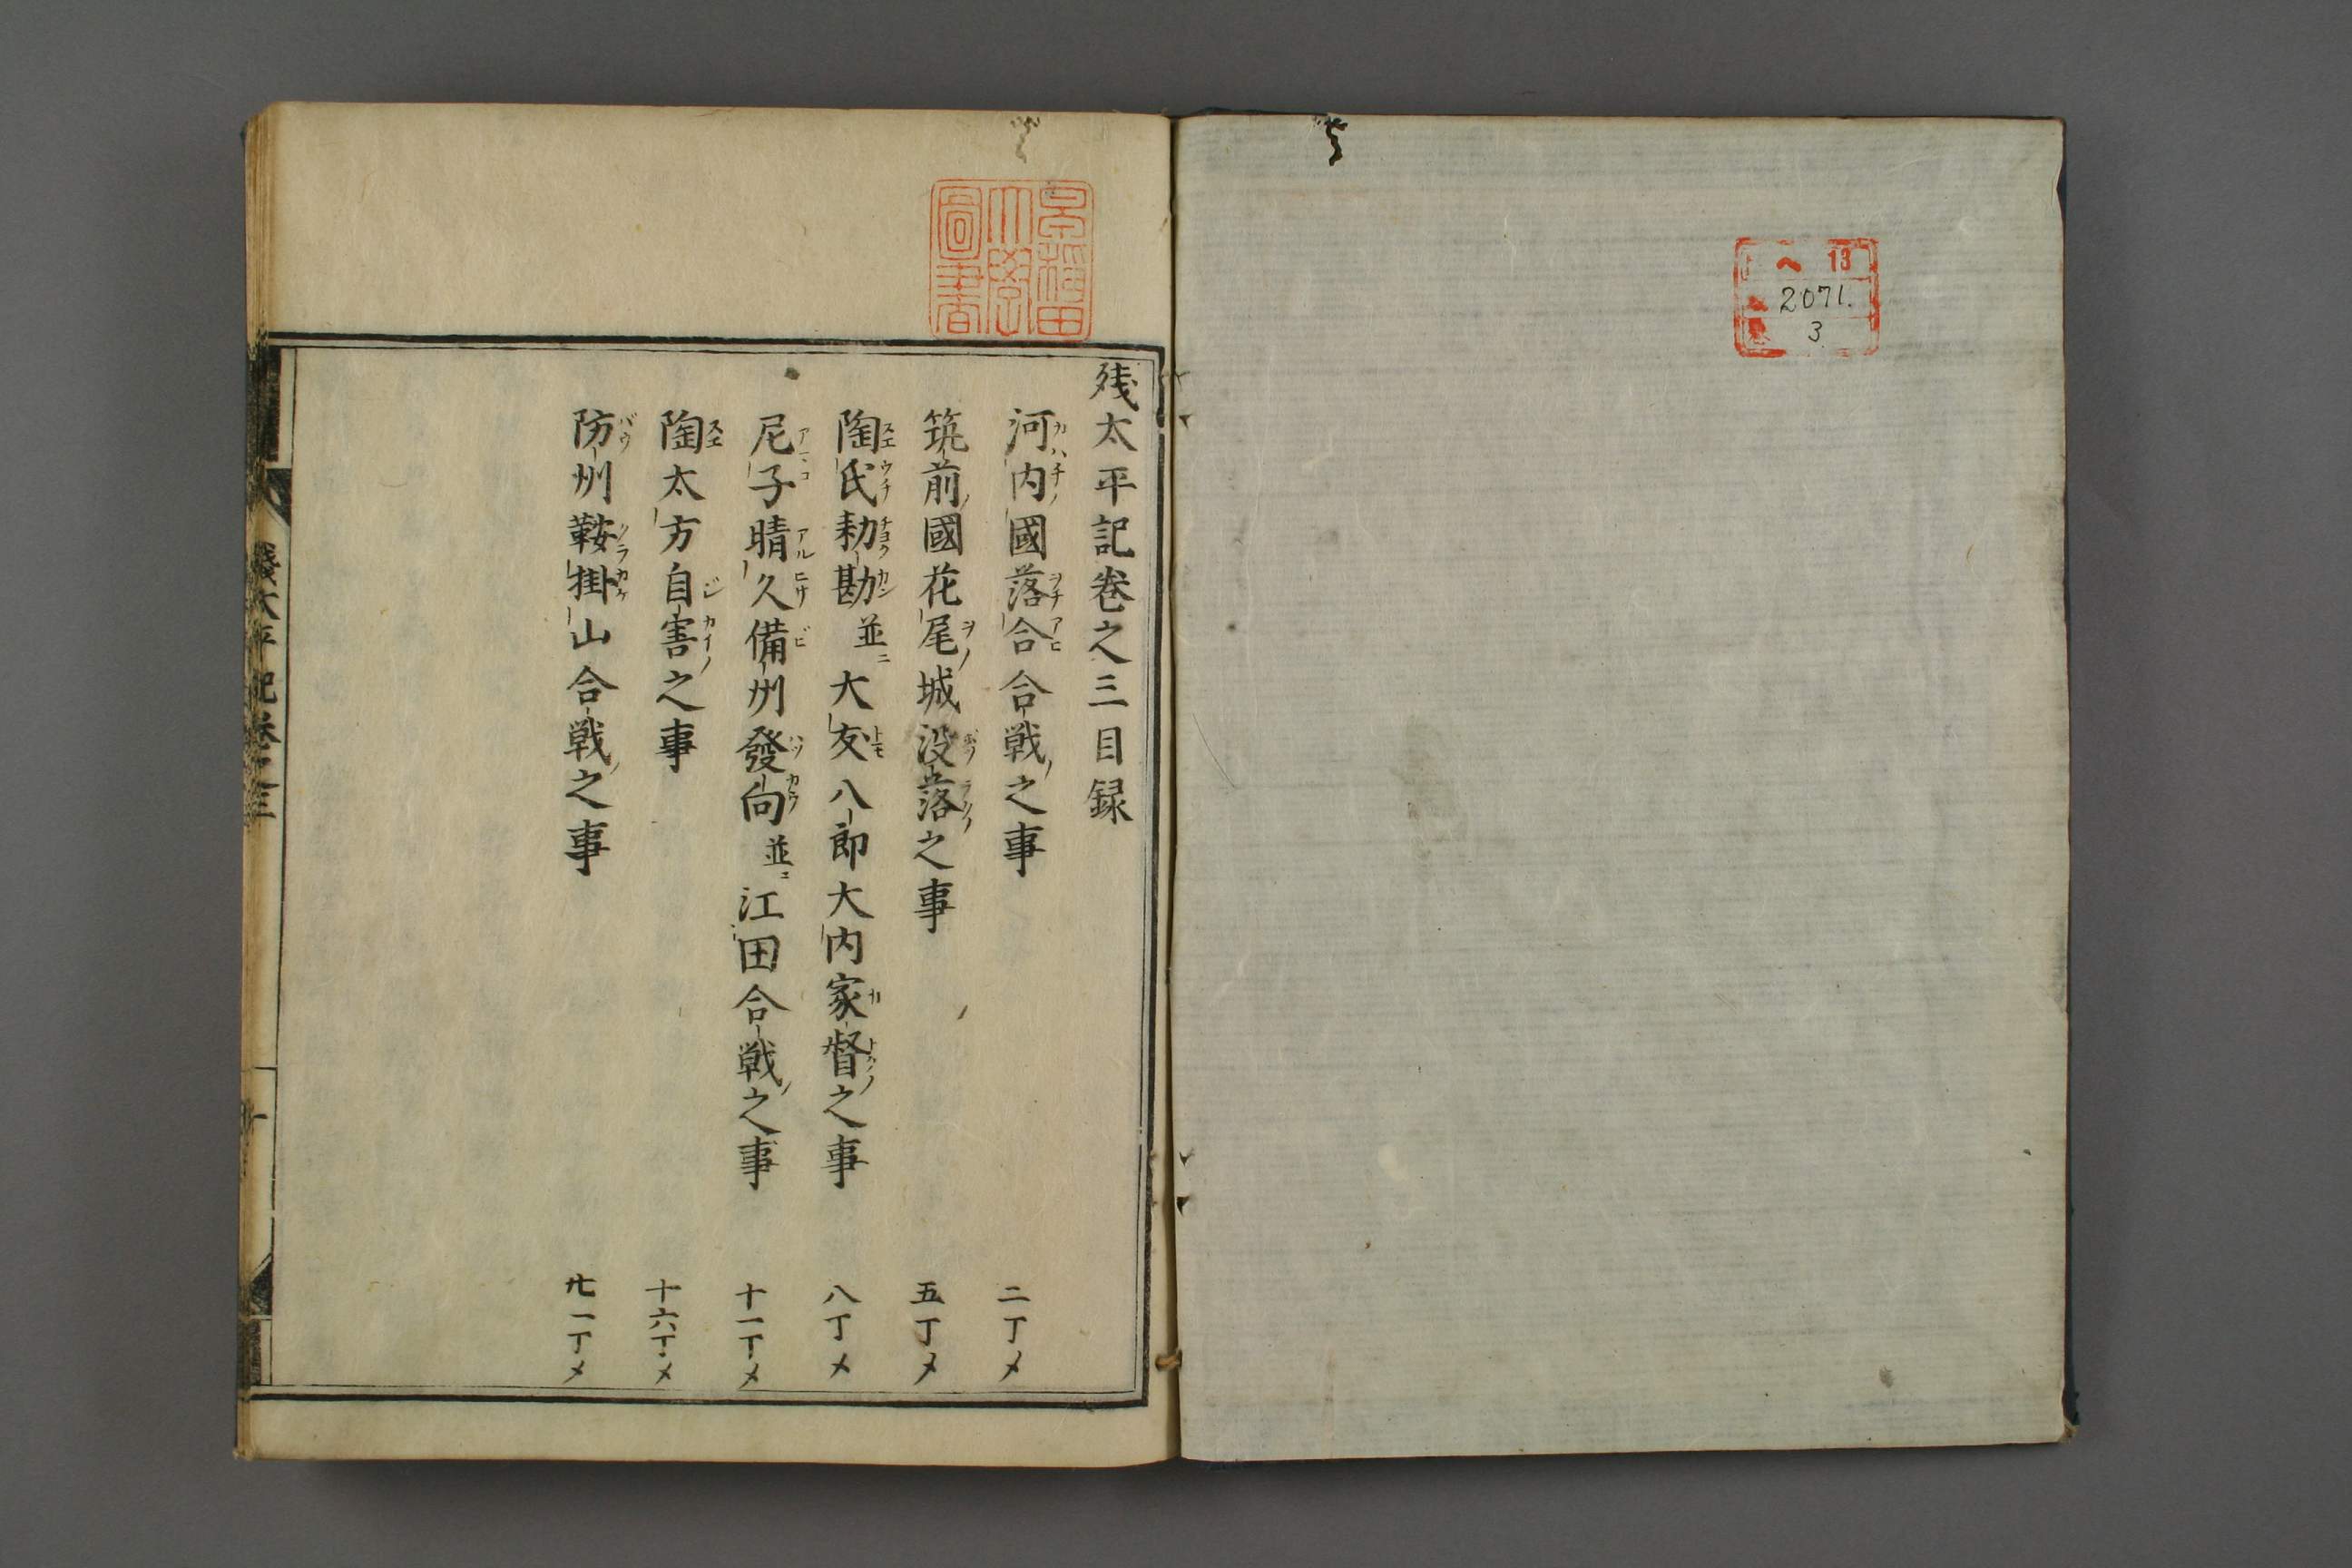 ヘ 13
2071.
3
早稲田
大學
圖書
残太平記巻之三目録
河内國落合合戦之事 二丁メ
筑前國花尾城没落之事 五丁メ
陶氏勅勘並ニ大友八郎大内家督之事 八丁メ
尼子晴久備州發向並ニ江田合戦之事 十一丁メ
陶太方自害之事 十六丁メ
防州鞍掛山合戦之事 廿一丁メ
残太平記巻之三